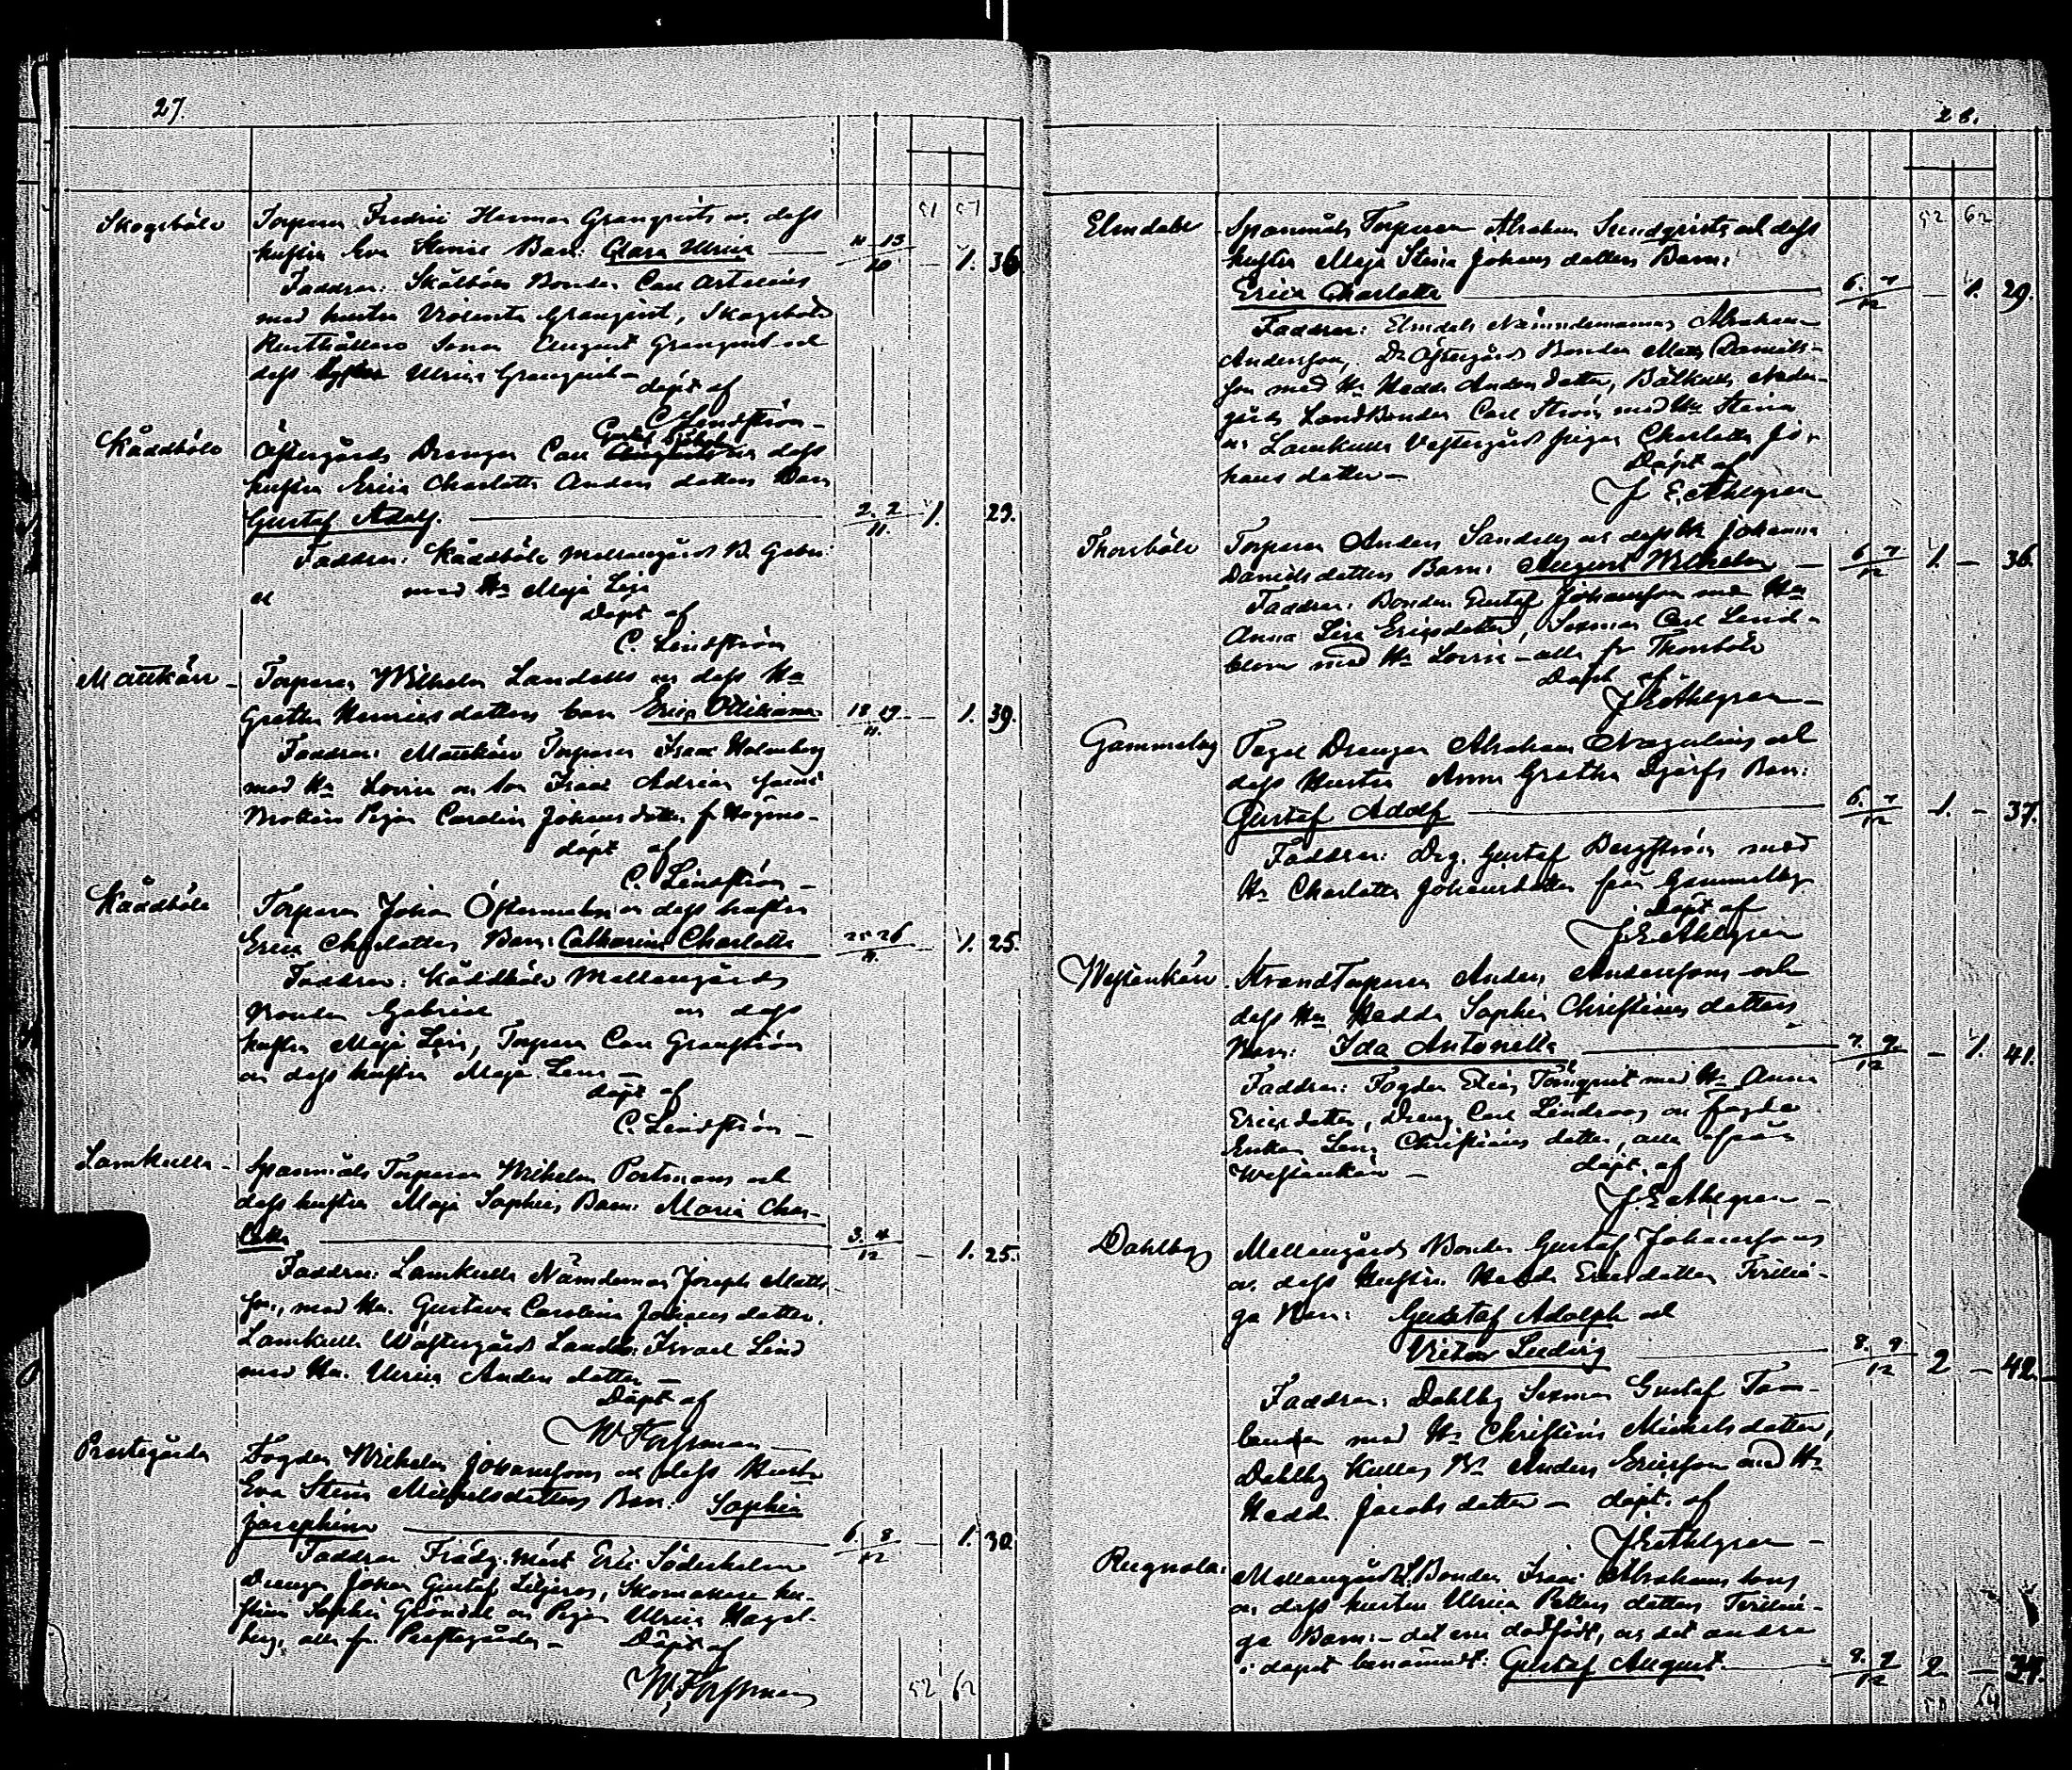 27.
51 57
Skogsböle Torparen Fredric Herman Granqvists o. dess
hustru Eva Stinas Barn: Clara Ulrica 11 13/10 — 1. 36.
Faddrar: Skålböle Bonden Carl Artelius
med hustru Granqvist, Skogsböle
Rusthållare Sonen August Granqvist och
dess Ulrica Granqvist —
döpt af
C. Lindström —
Råddböle Östergårds Drengen Carl dess
hustru Erica Charlotta Anders dotters Barn
Gustaf Adolf. 2. 2/11. 1. 29.
Faddrar: Råddböle Mellangårds B. Gabri-
el med Hu Maja Lisa
Döpt af
C. Lindström
Mattkärr — Torparen Wilhelm Landells o. dess Hu
Gretha Henricsdotters barn Erica Vilhelmina 18 19/11. — 1. 39.
Faddrar: Mattkärr Torparen Isaac Holmberg
med Hu Lovisa o. son Isaac Adrian samt
Pigan Carolina Johans dotter fr
döpt af
C. Lindström —
Råddböle Torparen Johan Östermans o. dess hustru
Erica Charlottas Barn: Catharina Charlotta 25 26/11. — 1. 25.
Faddrar: Råddböle Mellangårds
Bonden Gabriel o. dess
hustru Maja Lisa, Torparen Carl Granström
o. dess hustru Maja Lena —
döpt af
C. Lindström —
Lamkulla — Spanmåls Torparen Wilhelm Portmans och
dess hustru Maja Sophias Barn: Maria Char-
lotta 3. 4/12 — 1. 25.
Faddrar: Lamkulla Nämdeman Joseph Matts
son, med Hu. Gustava Carolina Johans dotter,
Lamkulla Wästergårds Landb. Israel Lind
med Hu. Ulrica Anders dotter —
Döpt af
W. Forssman —
Prestegården Fogden Wilhelm Johanssons och dess Hustru
Eva Stina Michelsdotters Barn: Sophia
Josephina 6. 8/12 — 1. 30.
Faddrar Trädg. mäst. Eric Söderholm
Drengen Johan Gustaf Liljeros, Skomakare hu-
strun Sophia Grönvall o. Pigan Ulrica Hagel-
berg, alla fr. Prestegården —
Döpt af
W. Forssman
52 62
28.
52 62
Elmdahl Spanmåls Torparen Abraham Sundqvists och dess
hustru Maja Stina Johans dotters Barn:
Erica Charlotta 6. 7/12 — 1. 29.
Faddrar: Elmdahls Nämndemannen Abraham
Andersson, Do Östergårds Bonden Matts Daniels-
son med Hu Hedda Anders dotter, Böle Neder-
gårds LandBonden Carl Ström med Hu Stina
o. Lamkulla Vestergårds pigan Charlotta Jo-
hans dotter —
Döpt af
J. E. Ahlgren
Thorsböle Torparen Anders Sandells o. dess Hu Johanna
Danielsdotters Barn: August Wilhelm — 6 7/12 1. — 36.
Faddrar: Bonden Gustaf Johansson med Hu
Anna Lisa Ericsdotter, Sexman Carl Lind-
blom med Hu Lovisa — alla fr Thorsböle
Döpt af
J. E. Ahlgren —
Gammelby Tegel Drengen Abraham Nazelius och
dess Hustru Anna Gretha Djerfs Barn:
Gustaf Adolf 6. 7/12 1. — 37.
Faddrar: Drg. Gustaf Bergström med
Hu Charlotta Johansdotter från Gammelby
Döpt af
J. E. Ahlgren
Westankärr StrandTorparen Anders Anderssons och
dess Hu Hedda Sophia Christians dotters
Barn: Ida Antonetta 7. 9./12 — 1. 41.
Faddrar: Fogden Elias Törnqvist med Hu Anna
Ericsdotter, Dreng Carl Lindroos o. fogde
Enkan Lena Christians dotter, alla ifrån
Westankärr —
döpt. af
J. E. Ahlgren —
Dahlby Mellangårds Bonden Gustaf Johanssons
o. dess Hustru Hedda Ericsdotters Tvilin-
ga Barn: Gustaf Adolph och
Victor Ludvig 8. 9./12 2 — 42.
Faddrar: Dahlby Sexman Gustaf Tam-
lander med Hu Christina Michelsdotter,
Dahlby Kullas Bn Anders Ericsson med Hu
Hedda Jacobs dotter — döpt. af
J. E. Ahlgren —
Rugnola: Mellangårds L.Bonden Isaac Abrahamssons
o. dess hustru Ulrica Petters dotters Tvilin-
ga Barn: — det ena dödfödt, o. det andra
i dopet benämndt: Gustaf August. 9. 9/12 2 —